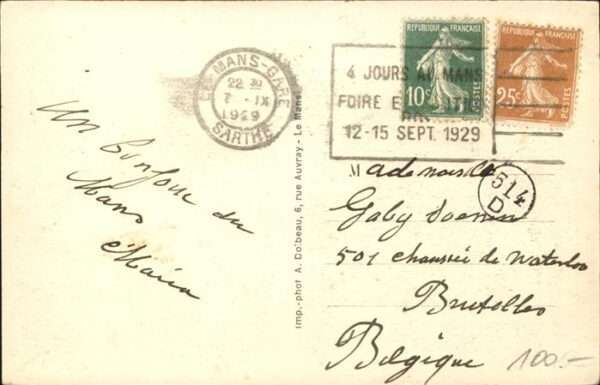 LE MANS-GARE
22 30
7 - IX
1929
SARTHE
4 JOURS AU MANS
FOIRE
12-15 SEPT. 1929
REPUBLIQUE FRANÇAISE
10c
POSTES
REPUBLIQUE FRANÇAISE
25c
POSTES
Un bonjour du
Mans
Maria
Imp.-phot A. Dolbeau, 6, rue Auvray - Le Mans
Mademoiselle
514
D
Gaby
501 chaussée de Waterloo
Bruxelles
Belgique
100.-